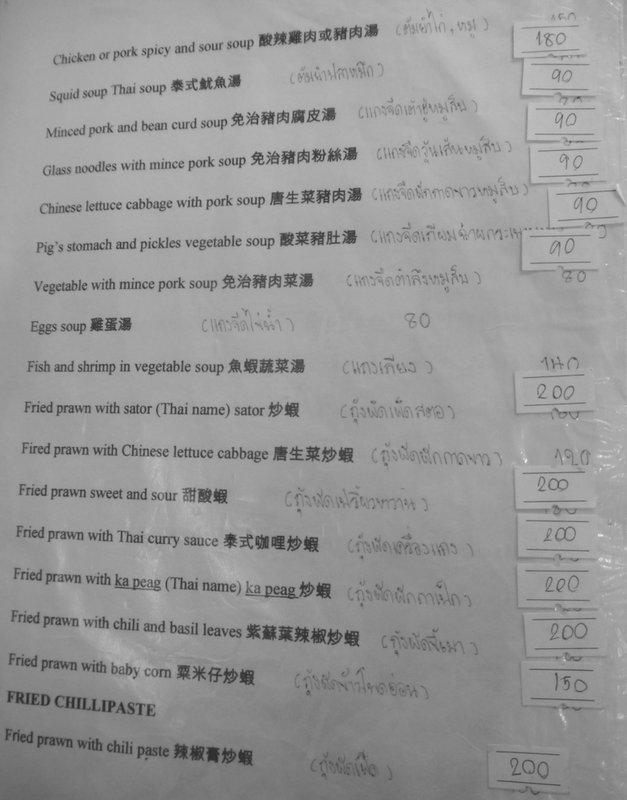 Chicken or pork spicy and sour soup 酸辣雞肉或豬肉湯 (ต้มยำไก่, หมู) 180
Squid soup Thai soup 泰式魷魚湯 (ต้มยำปลาหมึก) 90
Minced pork and bean curd soup 免治豬肉腐皮湯 (แกงจืดเต้าหู้หมูสับ) 90
Glass noodles with mince pork soup 免治豬肉粉絲湯 (แกงจืดวุ้นเส้นหมูสับ) 90
Chinese lettuce cabbage with pork soup 唐生菜豬肉湯 (แกงจืดผักกาดขาวหมูสับ) 90
Pig's stomach and pickles vegetable soup 酸菜豬肚湯 (แกงจืดเกียมฉ่าย 90
Vegetable with mince pork soup 免治豬肉菜湯 (แกงจืดตำลึงหมูสับ) 80
Eggs soup 雞蛋湯 (แกงจืดไข่น้ำ) 80
Fish and shrimp in vegetable soup 魚蝦蔬菜湯 (แกงเลียง) 140
Fried prawn with sator (Thai name) sator 炒蝦 (กุ้งผัดเผ็ดสตอ) 200
Fired prawn with Chinese lettuce cabbage 唐生菜炒蝦 (กุ้งผัดผักกาดขาว) 120
Fried prawn sweet and sour 甜酸蝦 (กุ้งผัดเปรี้ยวหวาน) 200
Fried prawn with Thai curry sauce 泰式咖哩炒蝦 (กุ้งผัดเครื่องแกง) 200
Fried prawn with ka peag (Thai name) ka peag 炒蝦 (กุ้งผัดผักกาเป็ก) 200
Fried prawn with chili and basil leaves 紫蘇葉辣椒炒蝦 (กุ้งผัดขี้เมา) 200
Fried prawn with baby corn 粟米仔炒蝦 (กุ้งผัดข้าวโพดอ่อน) 150
FRIED CHILLIPASTE
Fried prawn with chili paste 辣椒膏炒蝦 200